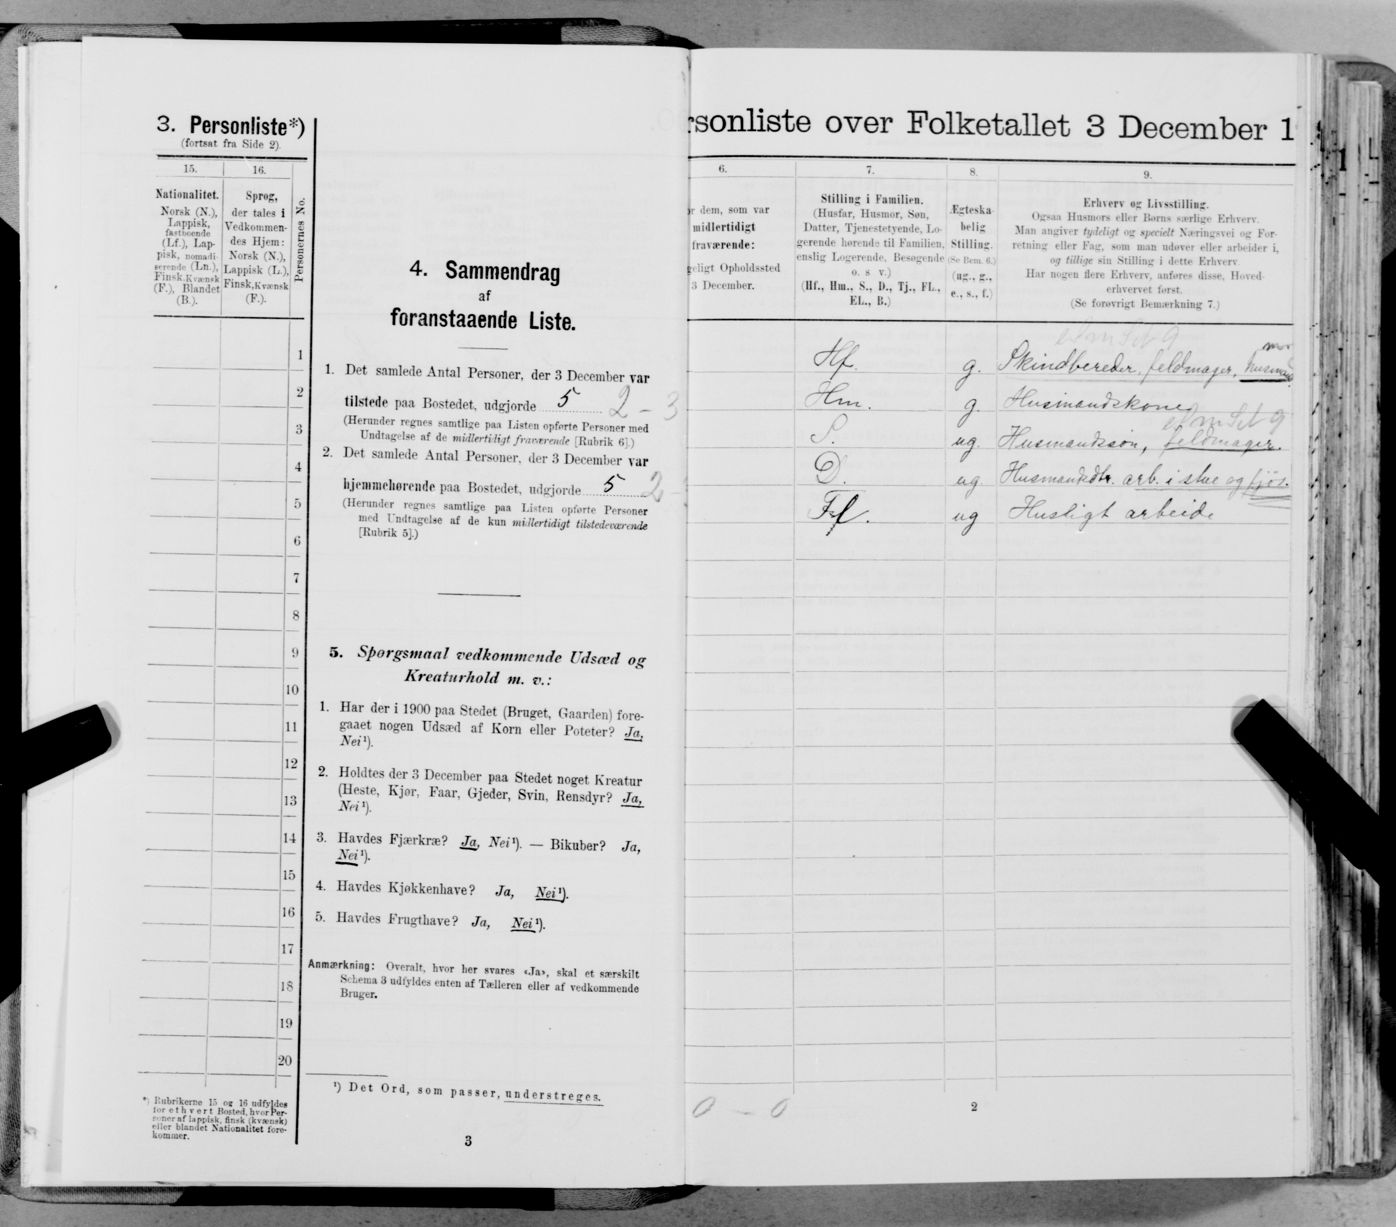 3. Personliste*)
(fortsat fra Side 2).
15.
16.
Personernes No.
Nationalitet.
Norsk (N.),
Lappisk,
fastboende
(Lf.), Lap-
pisk, nomadi-
serende (Ln.),
Finsk, Kvænsk
(F.), Blandet
(B.).
Sprog,
der tales i
Vedkommen-
des Hjem:
Norsk (N.),
Lappisk (L.),
Finsk, Kvænsk
(F.).
1
2
3
4
5
6
7
8
9
10
11
12
13
14
15
16
17
18
19
20
*) Rubrikerne 15 og 16 udfyldes
for ethvert Bosted, hvor Per-
soner af lappisk, finsk (kvænsk)
eller blandet Nationalitet fore-
kommer.
4. Sammendrag
af
foranstaaende Liste.
1. Det samlede Antal Personer, der 3 December var
tilstede paa Bostedet, udgjorde 5 2 - 3
(Herunder regnes samtlige paa Listen opførte Personer med
Undtagelse af de midlertidigt fraværende [Rubrik 6].)
2. Det samlede Antal Personer, der 3 December var
hjemmehørende paa Bostedet, udgjorde 5 2 -
(Herunder regnes samtlige paa Listen opførte Personer
med Undtagelse af de kun midlertidigt tilstedeværende
[Rubrik 5].)
5. Spørgsmaal vedkommende Udsæd og
Kreaturhold m. v.:
1. Har der i 1900 paa Stedet (Bruget, Gaarden) fore-
gaaet nogen Udsæd af Korn eller Poteter? Ja,
Nei¹).
2. Holdtes der 3 December paa Stedet noget Kreatur
(Heste, Kjør, Faar, Gjeder, Svin, Rensdyr? Ja,
Nei¹).
3. Havdes Fjærkræ? Ja, Nei¹). — Bikuber? Ja,
Nei¹).
4. Havdes Kjøkkenhave? Ja, Nei¹).
5. Havdes Frugthave? Ja, Nei¹).
Anmærkning: Overalt, hvor her svares «Ja», skal et særskilt
Schema 3 udfyldes enten af Tælleren eller af vedkommende
Bruger.
¹) Det Ord, som passer, understreges.
3
rsonliste over Folketallet 3 December 1
6.
7.
8.
9.
r dem, som var
midlertidigt
fraværende:
geligt Opholdssted
3 December.
Stilling i Familien.
(Husfar, Husmor, Søn,
Datter, Tjenestetyende, Lo-
gerende hørende til Familien,
enslig Logerende, Besøgende
o. s v.)
(Hf., Hm., S., D., Tj., FL.,
EL., B.)
Ægteska-
belig
Stilling.
(Se Bem. 6.)
(ug., g.,
e., s., f.)
Erhverv og Livsstilling.
Ogsaa Husmors eller Børns særlige Erhverv.
Man angiver tydeligt og specielt Næringsvei og For-
retning eller Fag, som man udøver eller arbeider i,
og tillige sin Stilling i dette Erhverv.
Har nogen flere Erhverv, anføres disse, Hoved-
erhvervet først.
(Se forøvrigt Bemærkning 7.)
Hf. g. Skindbereder, feldmager,
Hm. g. Husmandskone
S. ug. Husmandssøn, feldmager.
D. ug. Husmandsdtr. arb. i stue og fjøs.
Fl. ug Husligt arbeide
0 - 0
2